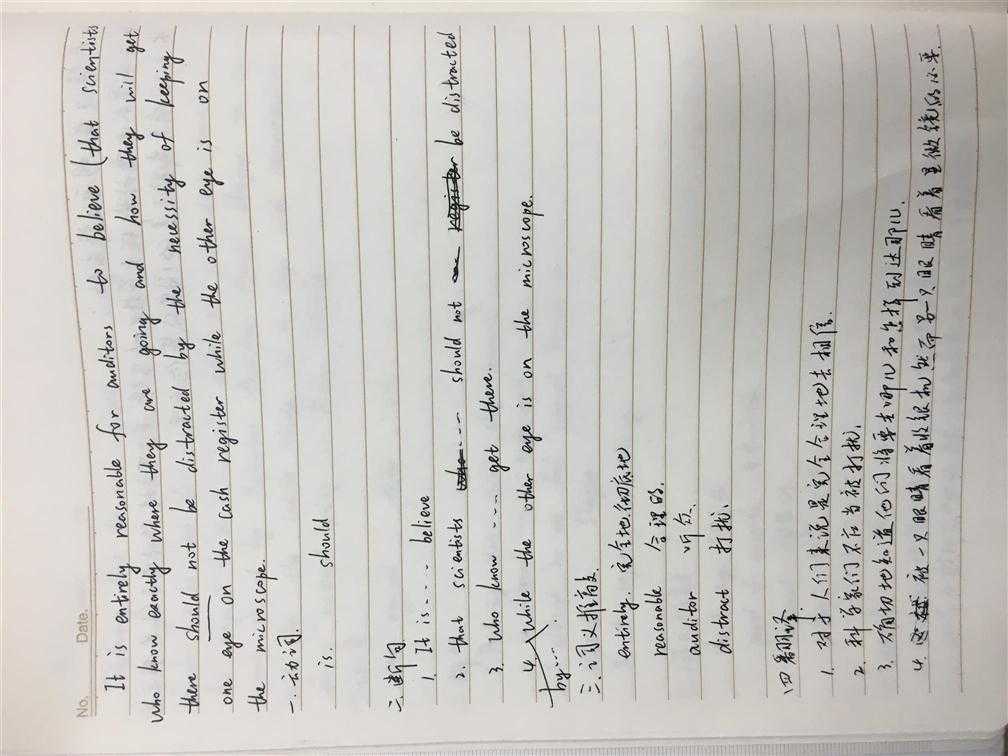 No.
Date.
It is entirely reasonable for auditors to believe (that scientists
who know exactly where they are going and how they will get
there should not be distracted by the necessity of keeping
one eye on the cash register while the other eye is on
the microscope.
一.动词.
is. should
二.断句
1. It is .... believe
2. that scientists who .... should not register be distracted
3. who know .... get there.
4. while the other eye is on the microscope.
by...
三.词义推荐
entirely. 完全地.彻底地
reasonable 合理的.
auditor 听众.
distract 打扰.
四翻译
1. 对于人们来说是完全合理地去相信.
2. 科学家们不应当被打扰.
3. 确切地知道他们将要去哪儿和怎样到达那儿.
4. 被一只眼睛看着收银机然而另一只眼睛看着显微镜的必要.